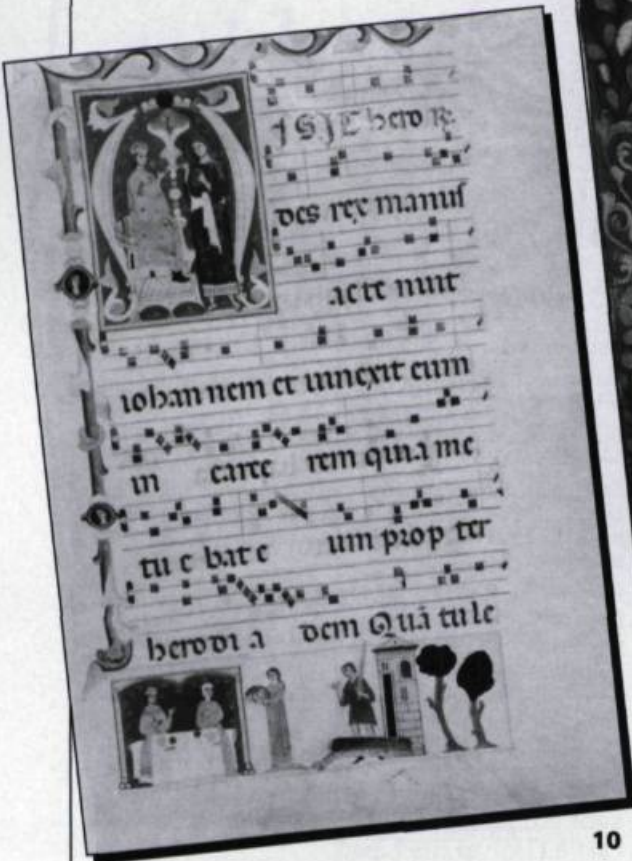 MISIT hero R
des rex manus
ac te nuit
iohan nem et uinnexit eum
in carce rem qui a me
tu e bat e um prop ter
herodi a dem Quā tu le
10